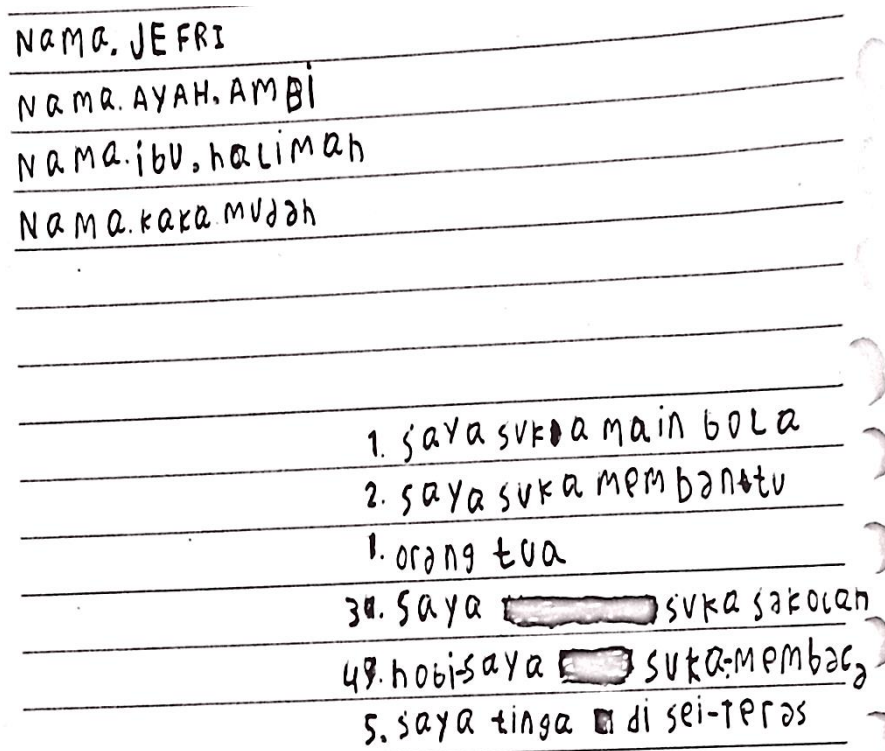 Nama. JEFRI
Nama. AYAH. AMBi
Nama. ibu. haLiMah
Nama. kaka mudah
1. saya suka main boLa
2. saya suka membantu
1. orang tua
3. saya suka sakolah
4. hobi-saya suka-membaca
5. saya tinga di sei-Teras